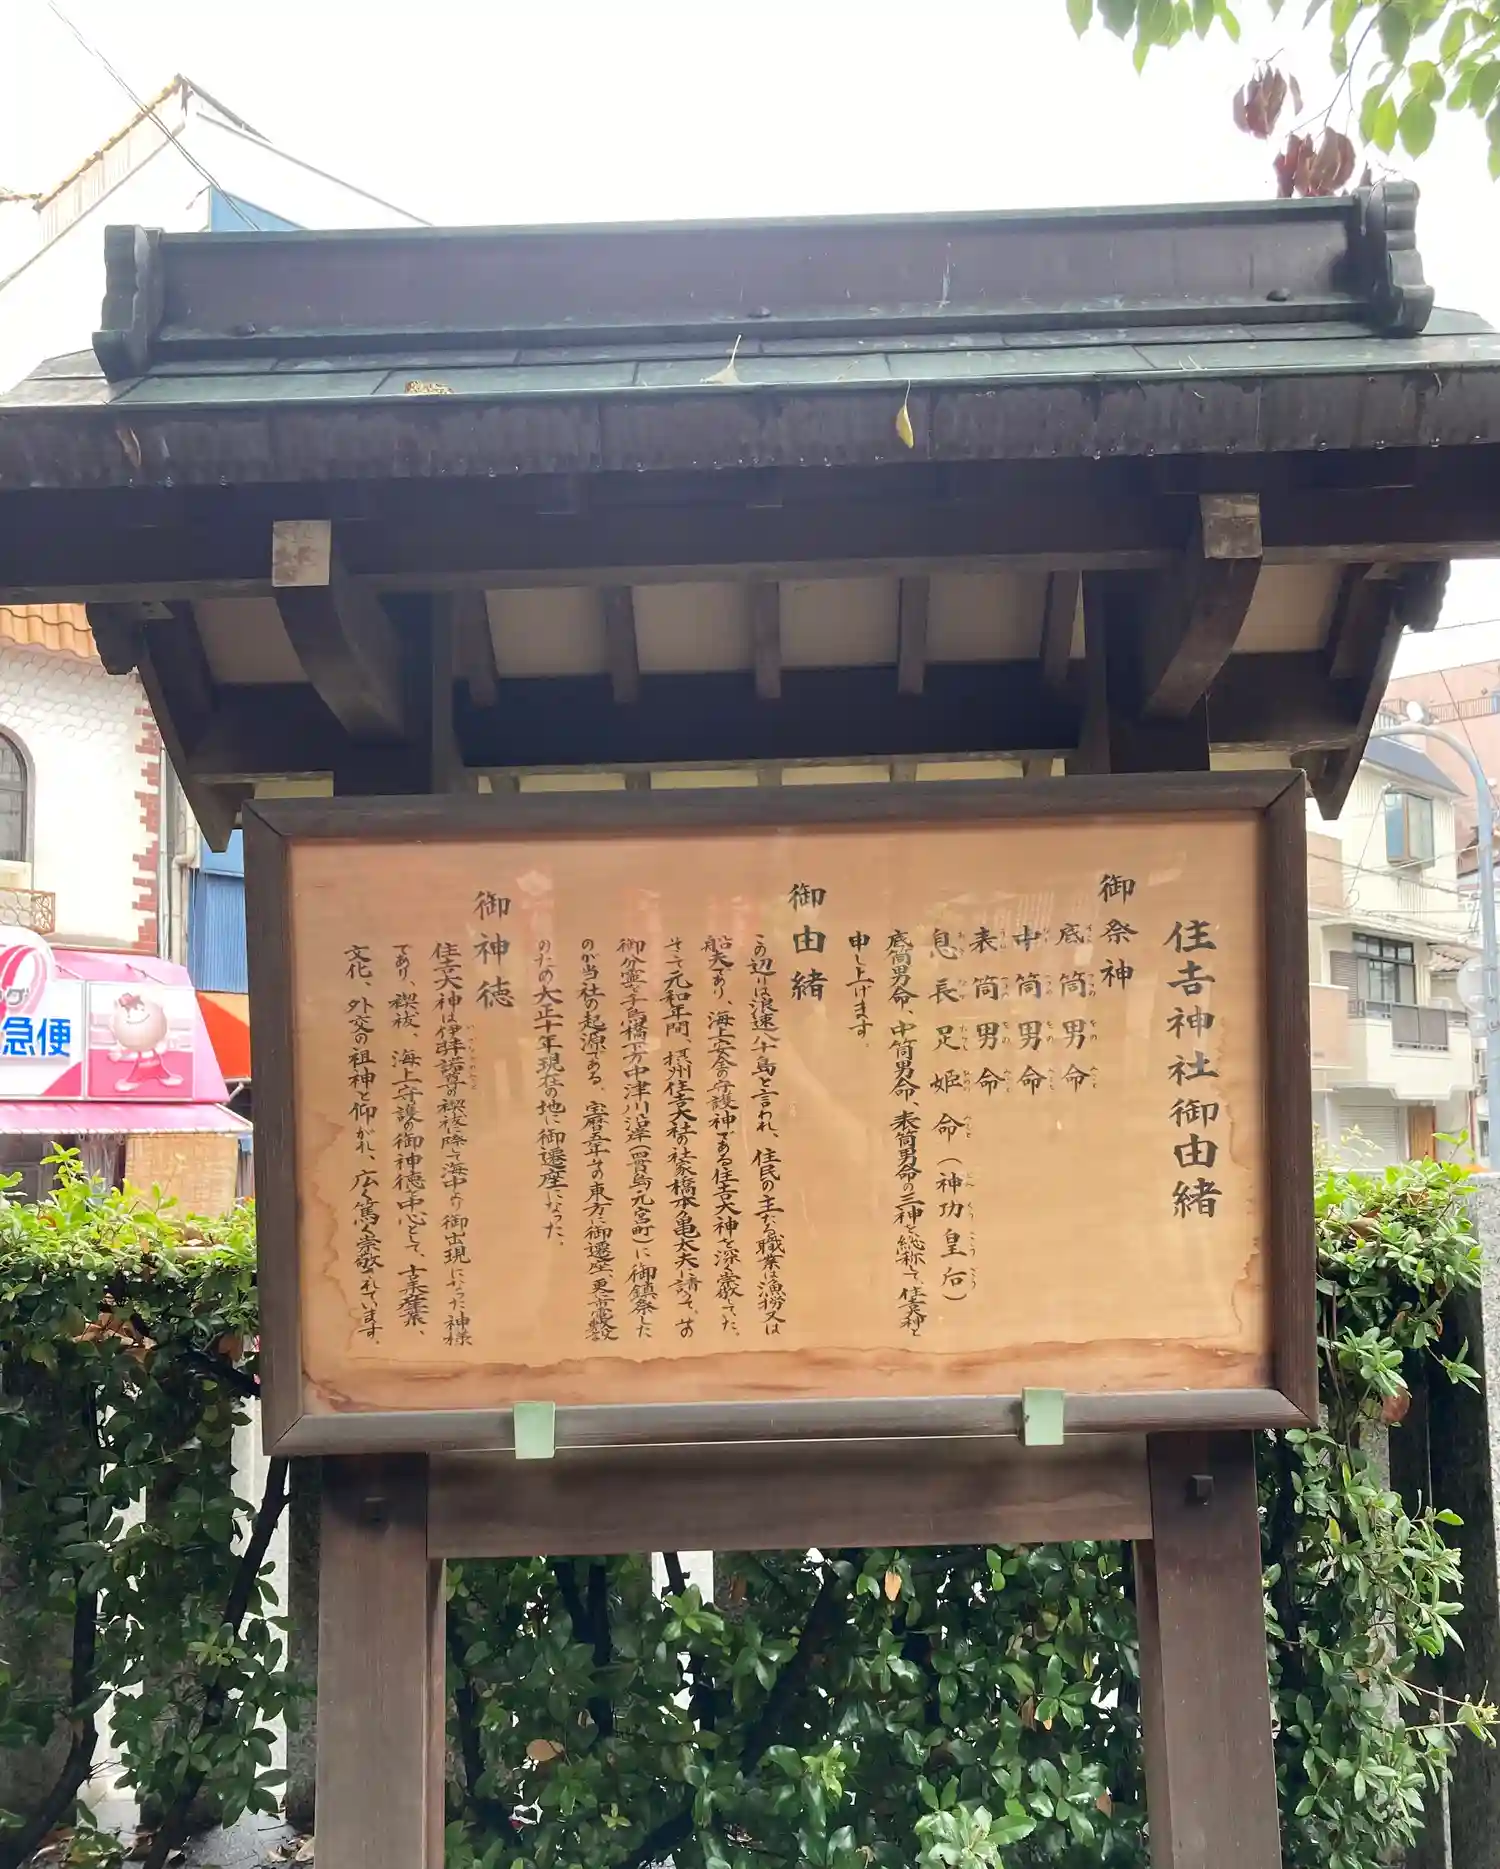 住吉神社御由緒
御祭神
底筒男命
中筒男命
表筒男命
息長足姫命(神功皇后)
底筒男命、中筒男命、表筒男命の三神を総称して、住吉大神と
申し上げます。
御由緒
この辺りは浪速八十島と言われ、住民の主たる職業は漁撈又は
船夫であり、海上安全の守護神である住吉大神を深く崇敬していた。
そこで元和年間、摂州住吉大社の社家橋本亀太夫に請うて、その
御分霊を子島橋下方中津川沿岸(四貫島・元宮町)に御鎮祭した
のが当社の起源である。宝暦五年その東方に御遷座、更に
のため大正十年現在の地に御遷座になった。
御神徳
住吉大神は伊弉諾尊の禊祓に際して海中より御出現になった神様
であり、禊祓、海上守護の御神徳を中心として、古来産業、
文化、外交の祖神と仰がれ、広く篤く崇敬されています。
急便